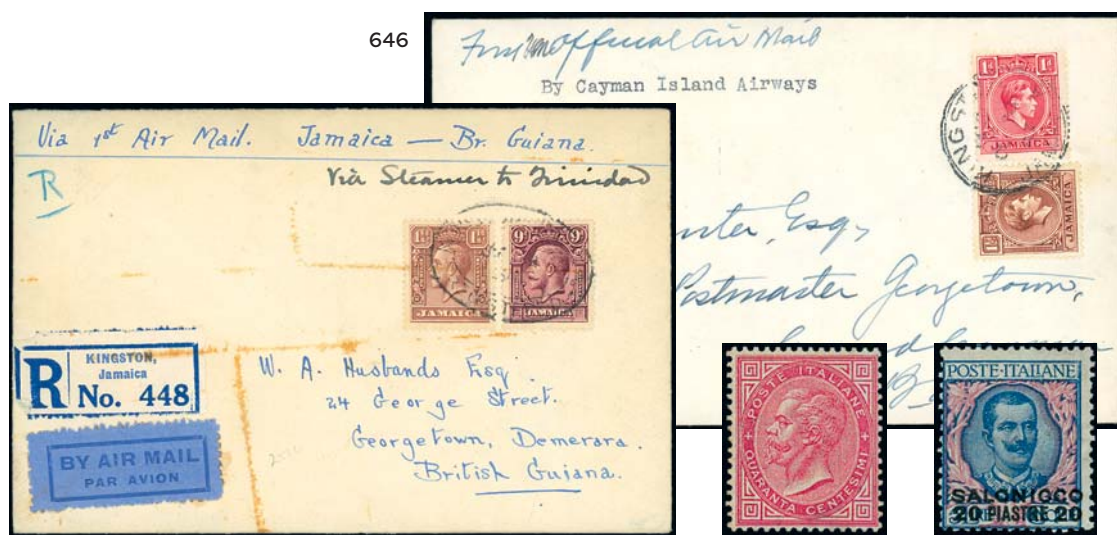 646
First Official Air Mail
By Cayman Island Airways
1d
JAMAICA
JAMAICA
Esq,
Postmaster Georgetown,
Via 1st Air Mail. Jamaica — Br. Guiana.
Via Steamer to Trinidad
R
1½d 1½d
JAMAICA
9d
JAMAICA
R
KINGSTON,
Jamaica
No. 448
BY AIR MAIL
PAR AVION
W. A. Husbands Esq
24 George Street.
Georgetown, Demerara.
British Guiana.
POSTE ITALIANE
QUARANTA CENTESIMI
POSTE·ITALIANE
SALONICCO
20 PIASTRE 20